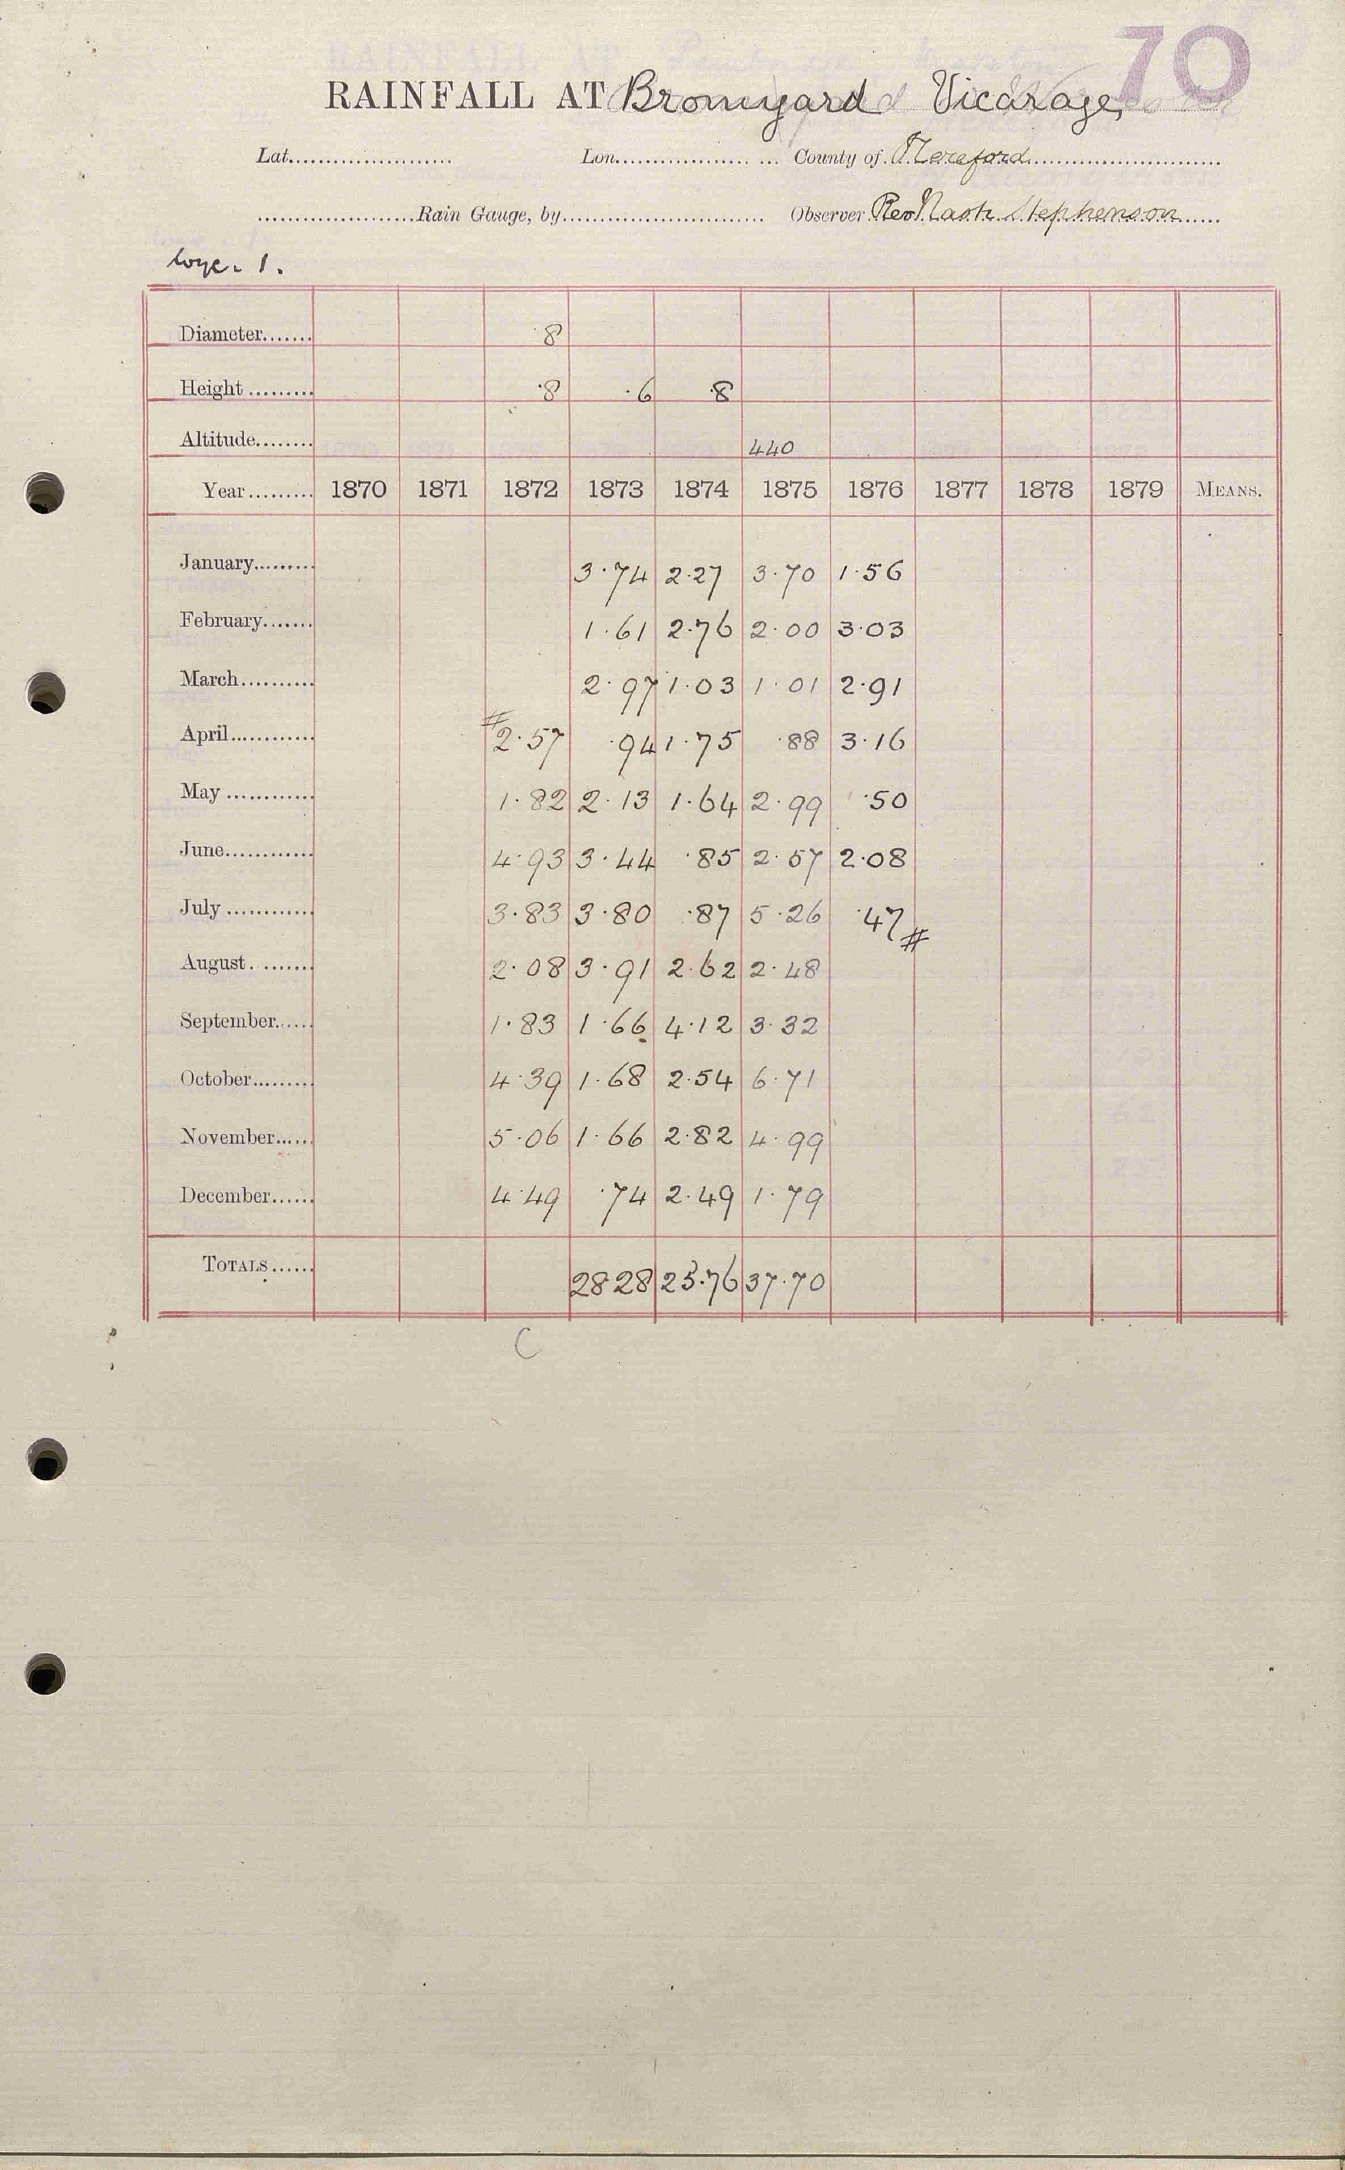 70
RAINFALL AT Bromyard Vicarage,
Lat. Lon. County of Hereford
Rain Gauge, by Observer Rev Nash Stephenson
Wye. 1.
Diameter 8
Height ·8 ·6 ·8
Altitude 440
Year 1870 1871 1872 1873 1874 1875 1876 1877 1878 1879 MEANS.
January 3·74 2·27 3·70 1·56
February 1·61 2·76 2·00 3·03
March 2·97 1·03 1·01 2·91
April #2·57 ·94 1·75 ·88 3·16
May 1·82 2·13 1·64 2·99 ·50
June 4·93 3·44 ·85 2·57 2·08
July 3·83 3·80 ·87 5·26 ·47#
August 2·08 3·91 2·62 2·48
September 1·83 1·66 4·12 3·32
October 4·39 1·68 2·54 6·71
November 5·06 1·66 2·82 4·99
December 4·49 ·74 2·49 1·79
TOTALS 28·28 25·76 37·70
C